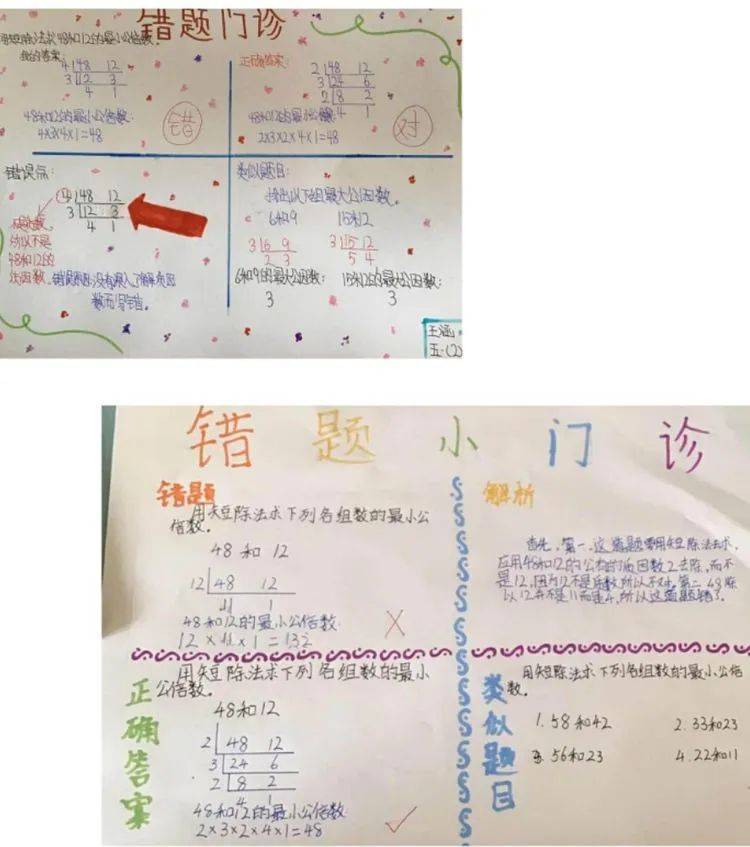 错题门诊
用短除法求48和12的最小公倍数。
我的答案:
4 48 12
3 12 3
4 1
48和12的最小公倍数:
4×3×4×1=48
错
正确答案:
2 48 12
3 24 6
2 8 2
4 1
48和12的最小公倍数
2×3×2×4×1=48
对
错误点:
4 48 12
3 12 3
4 1
所以不是
48和12的
错误原因:没有深入了解质因
数而导错。
类似题目:
找出以下组最大公因数。
6和9 15和12
3 6 9 3 15 12
2 3 5 4
6和9的最大公因数: 15和12的最大公因数:
3 3
王涵
五·(2)
错题小门诊
错题
用短除法求下列各组数的最小公
倍数。
48和12
12 48 12
11 1
48和12的最小公倍数:
12×11×1=132
×
解析
首先,第一,这道题要用短除法去求,
应用48和12的公有的质因数2去除,而不
是12,因为12不是质数所以不对。第二48除
以12并不是11而是4,所以这道题错了。
正确答案
用短除法求下列各组数的最小
公倍数。
48和12
2 48 12
3 24 6
2 8 2
4 1
48和12的最小公倍数
2×3×2×4×1=48
类似题目
用短除法求下列各组数的最小公倍
数。
1.58和42 2.33和23
3.56和23 4.22和11